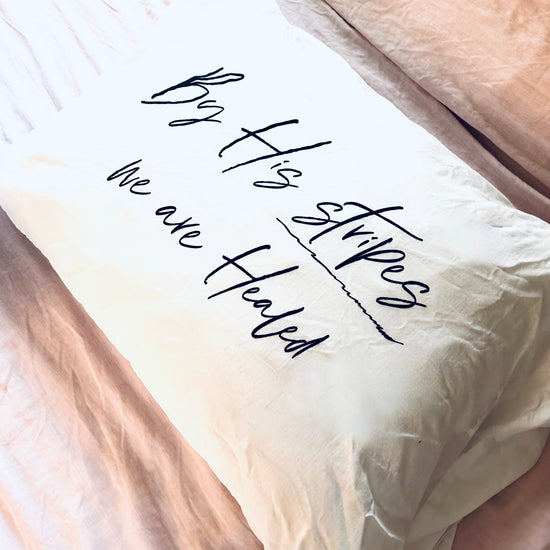 By His stripes
we are Healed